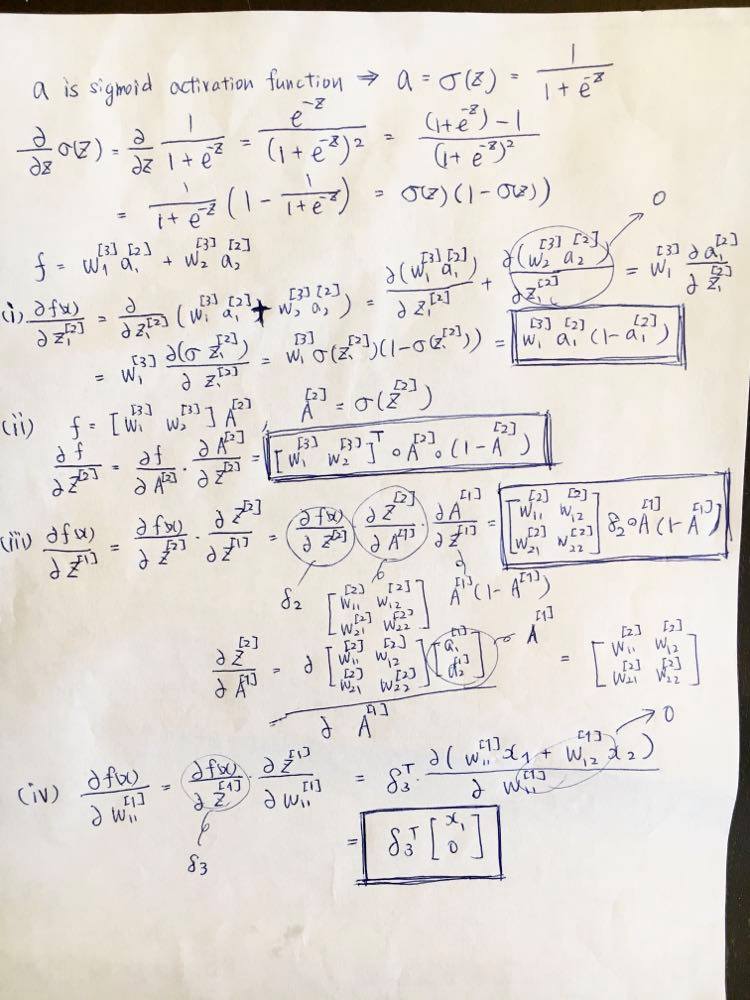 a is sigmoid activation function ⇒ a = σ(z) = 1 / (1 + e^{-z})
∂/∂z σ(z) = ∂/∂z 1 / (1 + e^{-z}) = e^{-z} / (1 + e^{-z})^2 = ((1+e^{-z}) - 1) / (1 + e^{-z})^2
= 1 / (1 + e^{-z}) (1 - 1 / (1 + e^{-z})) = σ(z) (1 - σ(z))
f = W_1^{[3]} a_1^{[2]} + W_2^{[3]} a_2^{[2]} 0
(i) ∂f(x) / ∂z_1^{[2]} = ∂ / ∂z_1^{[2]} (W_1^{[3]} a_1^{[2]} + W_2^{[3]} a_2^{[2]}) = ∂(W_1^{[3]} a_1^{[2]}) / ∂z_1^{[2]} + ∂(W_2^{[3]} a_2^{[2]}) / ∂z_1^{[2]} = W_1^{[3]} ∂a_1^{[2]} / ∂z_1^{[2]}
= W_1^{[3]} ∂(σ z_1^{[2]}) / ∂z_1^{[2]} = W_1^{[3]} σ(z_1^{[2]})(1-σ(z_1^{[2]})) = W_1^{[3]} a_1^{[2]} (1-a_1^{[2]})
(ii) f = [W_1^{[3]} W_2^{[3]}] A^{[2]}, A^{[2]} = σ(Z^{[2]})
∂f / ∂Z^{[2]} = ∂f / ∂A^{[2]} · ∂A^{[2]} / ∂Z^{[2]} = [W_1^{[3]} W_2^{[3]}]^T ∘ A^{[2]} ∘ (1-A^{[2]})
(iii) ∂f(x) / ∂Z^{[1]} = ∂f(x) / ∂Z^{[2]} · ∂Z^{[2]} / ∂Z^{[1]} = ∂f(x) / ∂Z^{[2]} · ∂Z^{[2]} / ∂A^{[1]} · ∂A^{[1]} / ∂Z^{[1]} = [W_11^{[2]} W_12^{[2]} ; W_21^{[2]} W_22^{[2]}] δ_2 ∘ A^{[1]} (1-A^{[1]})
δ_2 [W_11^{[2]} W_12^{[2]} ; W_21^{[2]} W_22^{[2]}] A^{[1]}(1-A^{[1]})
∂Z^{[2]} / ∂A^{[1]} = ∂ [W_11^{[2]} W_12^{[2]} ; W_21^{[2]} W_22^{[2]}] [a_1^{[1]} ; a_2^{[1]}] / ∂A^{[1]} A^{[1]} = [W_11^{[2]} W_12^{[2]} ; W_21^{[2]} W_22^{[2]}]
0
(iv) ∂f(x) / ∂W_11^{[1]} = ∂f(x) / ∂Z^{[1]} · ∂Z^{[1]} / ∂W_11^{[1]} = δ_3^T · ∂(W_11^{[1]} x_1 + W_12^{[1]} x_2) / ∂W_11^{[1]}
δ_3
= δ_3^T [x_1 ; 0]